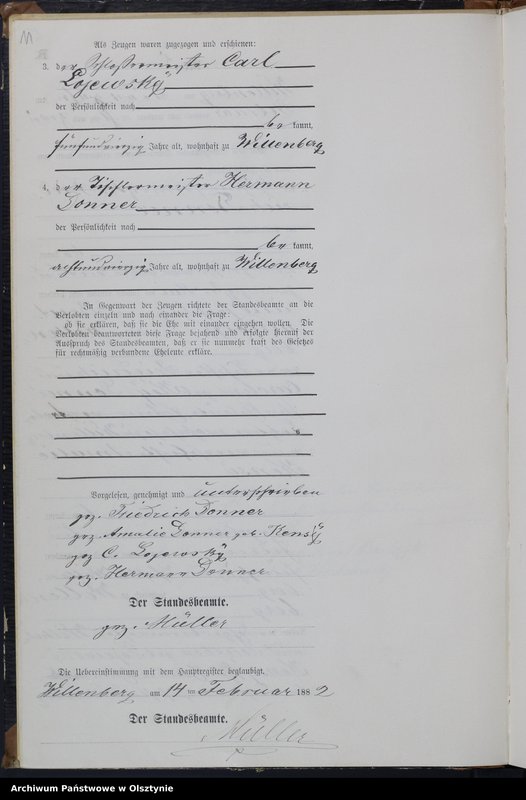 11
Als Zeugen waren zugezogen und erschienen:
3. der Schlossermeister Carl
Lojewsky
der Persönlichkeit nach
be kannt,
fünfundvierzig Jahre alt, wohnhaft zu Willenberg
4. der Tischlermeister Hermann
Donner
der Persönlichkeit nach
be kannt,
achtundvierzig Jahre alt, wohnhaft zu Willenberg
In Gegenwart der Zeugen richtete der Standesbeamte an die
Verlobten einzeln und nach einander die Frage:
ob sie erklären, daß sie die Ehe mit einander eingehen wollen. Die
Verlobten beantworteten diese Frage bejahend und erfolgte hierauf der
Ausspruch des Standesbeamten, daß er sie nunmehr kraft des Gesetzes
für rechtmäßig verbundene Eheleute erkläre.
Vorgelesen, genehmigt und unterschrieben
gez. Friedrich Donner
gez. Amalie Donner geb.
gez C. Lojewsky
gez. Hermann Donner
Der Standesbeamte.
gez. Müller
Die Uebereinstimmung mit dem Hauptregister beglaubigt.
Willenberg am 14 ten Februar 188 2
Der Standesbeamte.
Müller
Archiwum Państwowe w Olsztynie